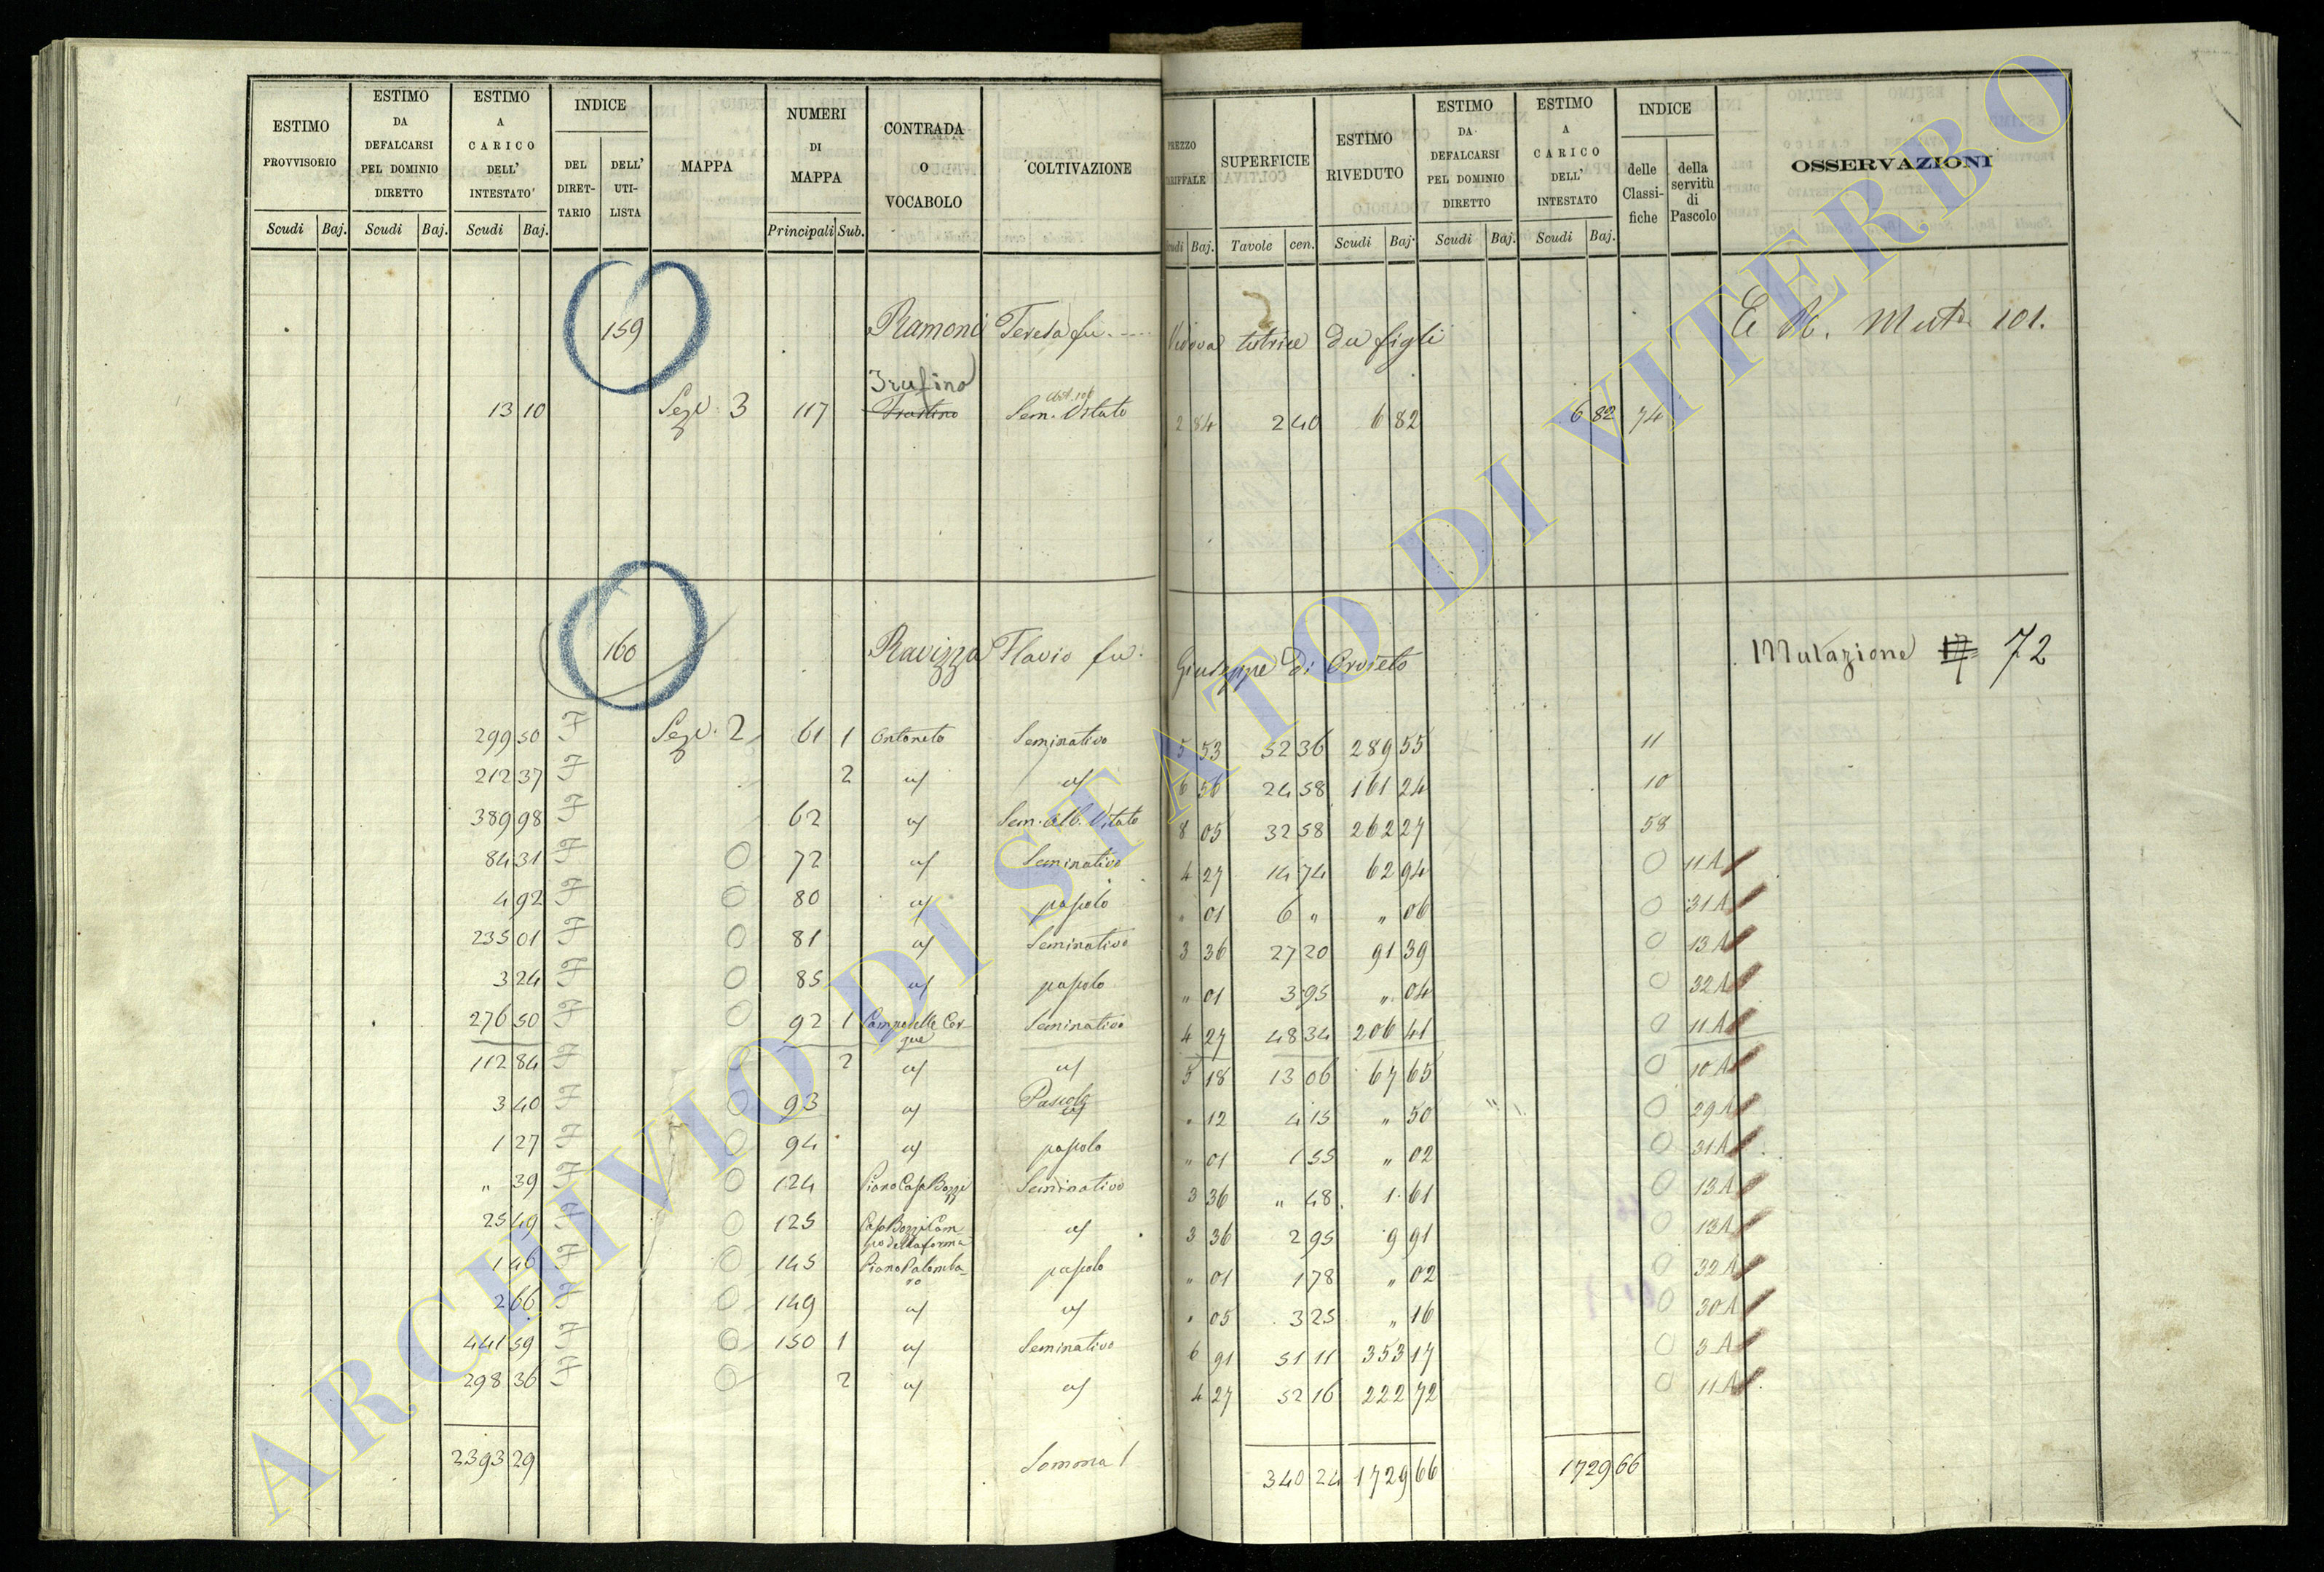 ESTIMO PROVVISORIO | ESTIMO DA DEFALCARSI PEL DOMINIO DIRETTO | ESTIMO A CARICO DELL' INTESTATO | INDICE | MAPPA | NUMERI DI MAPPA | CONTRADA O VOCABOLO | COLTIVAZIONE | PREZZO TARIFFALE | SUPERFICIE | ESTIMO RIVEDUTO | ESTIMO DA DEFALCARSI PEL DOMINIO DIRETTO | ESTIMO A CARICO DELL' INTESTATO | INDICE | OSSERVAZIONI
DEL DIRETTARIO | DELL' UTILISTA | delle Classifiche | della servitù di Pascolo
Scudi | Baj. | Scudi | Baj. | Scudi | Baj. | Principali | Sub. | Scudi | Baj. | Tavole | cen. | Scudi | Baj. | Scudi | Baj. | Scudi | Baj.
159 Ramoni Teresa fu .... Vedova tutrice dei figli Mut. 101.
Trufino
13 10 Sez. 3 117 Sem. Vitato 2 84 2 40 6 82 6 82 74
160 Ravizza Flavio fu Giuseppe di Orvieto Mutazione 72
299 50 F Sez. 2 61 1 Ontaneto Seminativo 5 53 52 36 289 55 11
212 37 F 2 " " 6 56 24 58 161 24 10
389 98 F 62 " Sem. Alb. Vitato 8 05 32 58 262 27 58
84 31 F O 72 " Seminativo 4 27 14 74 62 94 O 11 A
4 92 F O 80 " pascolo " 01 6 " " 06 O 31 A
235 01 F O 81 " Seminativo 3 36 27 20 91 39 O 13 A
3 24 F O 85 " pascolo " 01 3 95 " 04 O 32 A
276 50 F O 92 1 Campo delle Cerque Seminativo 4 27 48 34 206 41 O 11 A
112 84 F O 2 " " 5 18 13 06 67 65 O 10 A
3 40 F O 93 " Pascolo " 12 4 15 " 50 O 29 A
1 27 F O 94 " pascolo " 01 1 55 " 02 O 31 A
" 39 F O 124 Piano Casa Bozzi Seminativo 3 36 " 48 1 61 O 13 A
25 49 F O 125 Casa Bozzi Campo della forma " 3 36 2 95 9 91 O 13 A
1 46 F O 145 Piano Palombaro pascolo " 01 1 78 " 02 O 32 A
2 66 F O 149 " " " 05 3 25 " 16 O 30 A
441 59 F O 150 1 " Seminativo 6 91 51 11 353 17 O 3 A
298 36 F O 2 " " 4 27 52 16 222 72 O 11 A
2393 29 Somma 340 24 1729 66 1729 66
ARCHIVIO DI STATO DI VITERBO